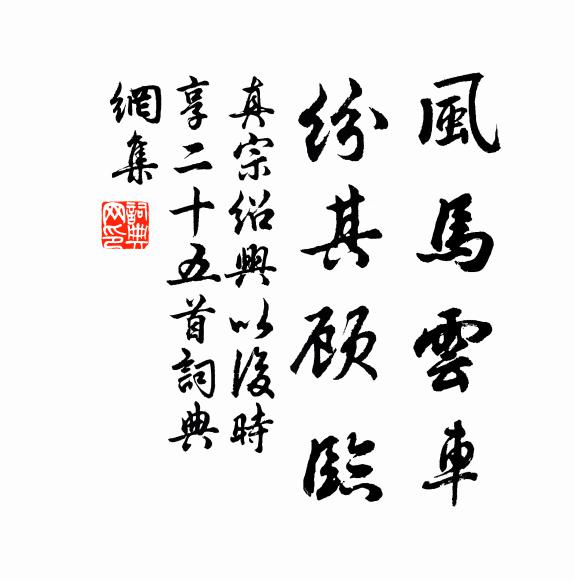 風馬雲車
紛其顾臨
真宗紹興以後時
享二十五首詞典
網集
詞典
网印